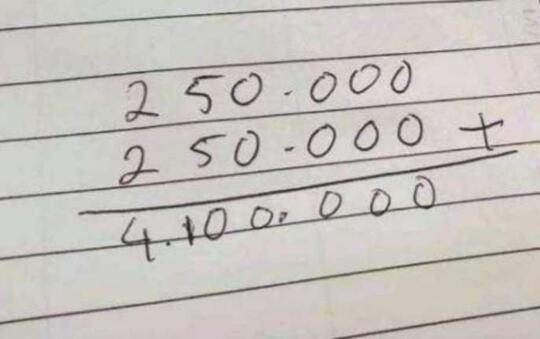 250.000
250.000 +
4.100.000